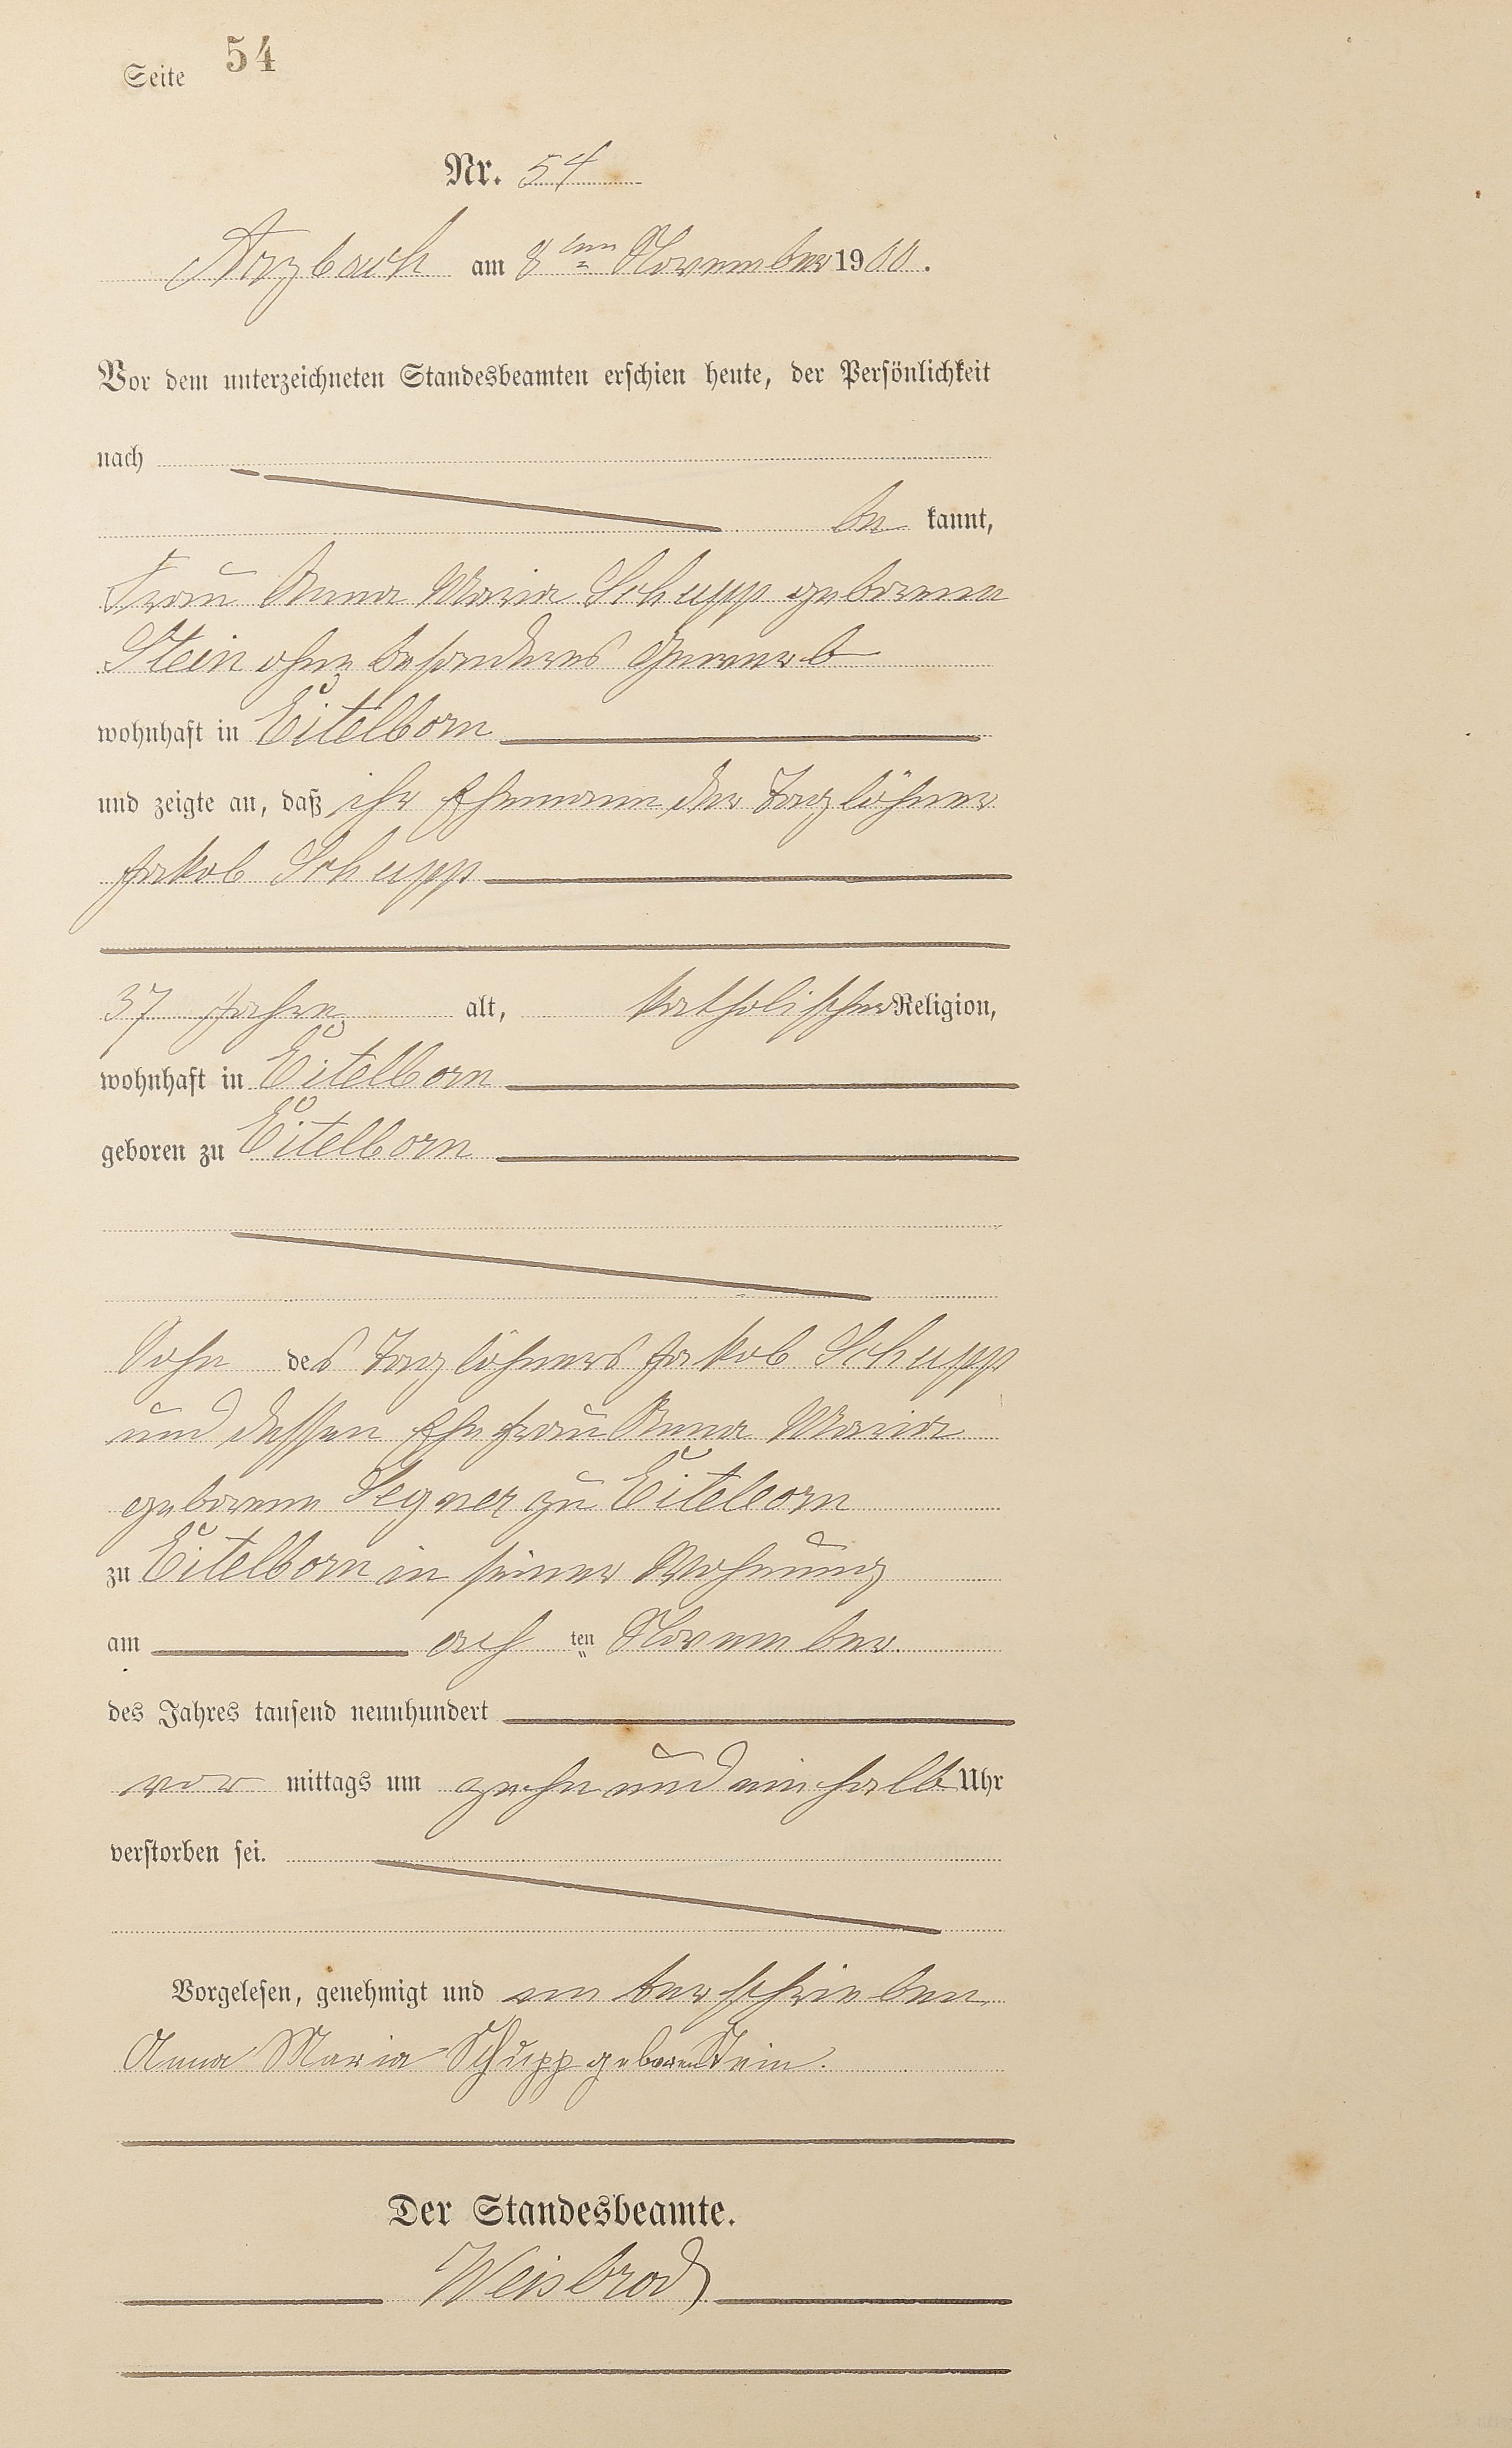 Seite 54
Nr. 54
Arzbach am 8ten November 1900.
Vor dem unterzeichneten Standesbeamten erschien heute, der Persönlichkeit
nach
be kannt,
Frau Anna Maria Schupp geborene
Stein ohne besonderes Gewerb
wohnhaft in Eitelborn
und zeigte an, daß ihr Ehemann der Taglöhner
Jakob Schupp
37 Jahre alt, katholischer Religion,
wohnhaft in Eitelborn
geboren zu Eitelborn
Sohn des Taglöhners Jakob Schupp
und dessen Ehefrau Anna Maria
geborene Segner zu Eitelborn
zu Eitelborn in seiner Wohnung
am ach ten November
des Jahres tausend neunhundert
vor mittags um zehn und ein halb Uhr
verstorben sei.
Vorgelesen, genehmigt und unterschrieben
Anna Maria Schupp geboren Stein.
Der Standesbeamte.
Weisbrod